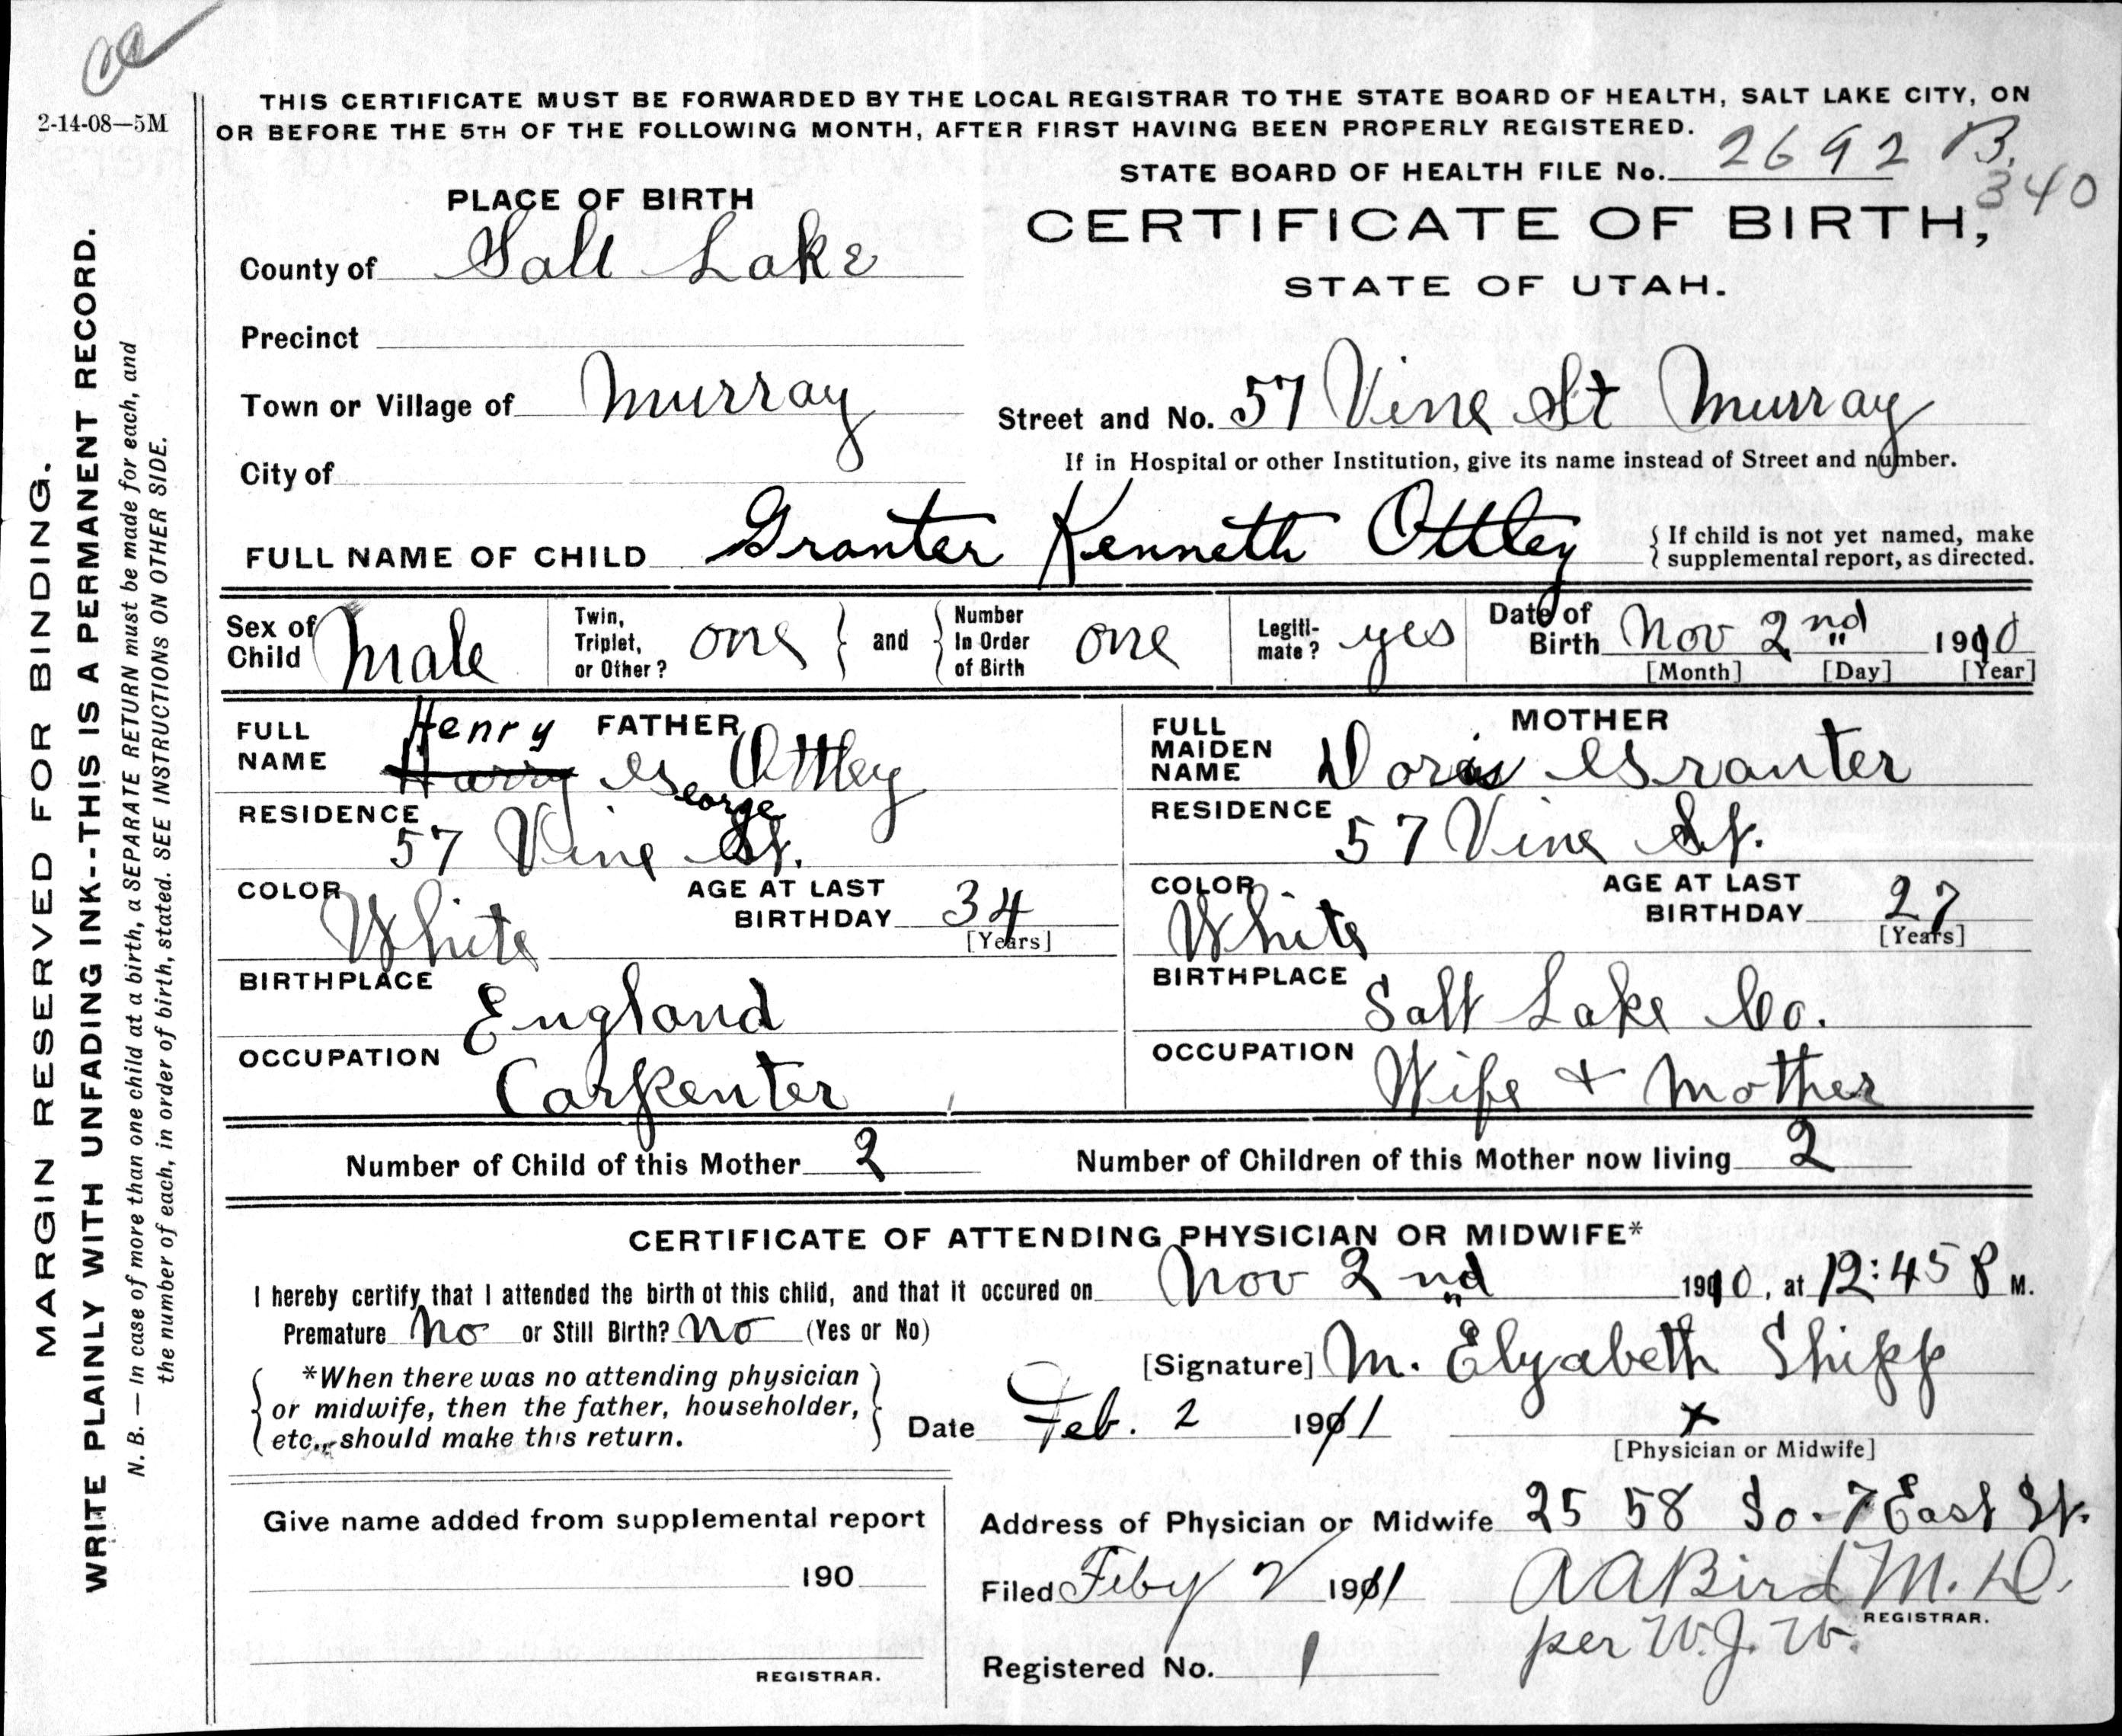 2-14-08—5M
THIS CERTIFICATE MUST BE FORWARDED BY THE LOCAL REGISTRAR TO THE STATE BOARD OF HEALTH, SALT LAKE CITY, ON
OR BEFORE THE 5TH OF THE FOLLOWING MONTH, AFTER FIRST HAVING BEEN PROPERLY REGISTERED.
STATE BOARD OF HEALTH FILE No. 2692 B.
340
PLACE OF BIRTH
CERTIFICATE OF BIRTH,
STATE OF UTAH.
County of Salt Lake
Precinct
Town or Village of Murray
Street and No. 57 Vine St Murray
City of
If in Hospital or other Institution, give its name instead of Street and number.
FULL NAME OF CHILD Granter Kenneth Ottley
{ If child is not yet named, make
supplemental report, as directed.
Sex of Child Male
Twin, Triplet, or Other? one } and { Number In Order of Birth one
Legitimate? yes
Date of Birth Nov 2nd 1910
[Month] [Day] [Year]
FATHER
FULL NAME Henry Harry George Ottley
RESIDENCE 57 Vine St.
COLOR White
AGE AT LAST BIRTHDAY 34
[Years]
BIRTHPLACE England
OCCUPATION Carpenter
MOTHER
FULL MAIDEN NAME Doris Granter
RESIDENCE 57 Vine St.
COLOR White
AGE AT LAST BIRTHDAY 27
[Years]
BIRTHPLACE Salt Lake Co.
OCCUPATION Wife + Mother
Number of Child of this Mother 2
Number of Children of this Mother now living 2
CERTIFICATE OF ATTENDING PHYSICIAN OR MIDWIFE*
I hereby certify that I attended the birth of this child, and that it occured on Nov 2nd 1910, at 12:45 P M.
Premature No or Still Birth? No (Yes or No)
{ *When there was no attending physician
or midwife, then the father, householder,
etc., should make this return. }
[Signature] M. Elyzabeth Shipp
Date Feb. 2 1911
x
[Physician or Midwife]
Give name added from supplemental report
190
REGISTRAR.
Address of Physician or Midwife 2558 So. 7 East St.
Filed Feby 2 1911
A A Bird M.D.
REGISTRAR.
per W.J.W.
Registered No. 1
MARGIN RESERVED FOR BINDING.
WRITE PLAINLY WITH UNFADING INK--THIS IS A PERMANENT RECORD.
N. B. — In case of more than one child at a birth, a SEPARATE RETURN must be made for each, and
the number of each, in order of birth, stated. SEE INSTRUCTIONS ON OTHER SIDE.